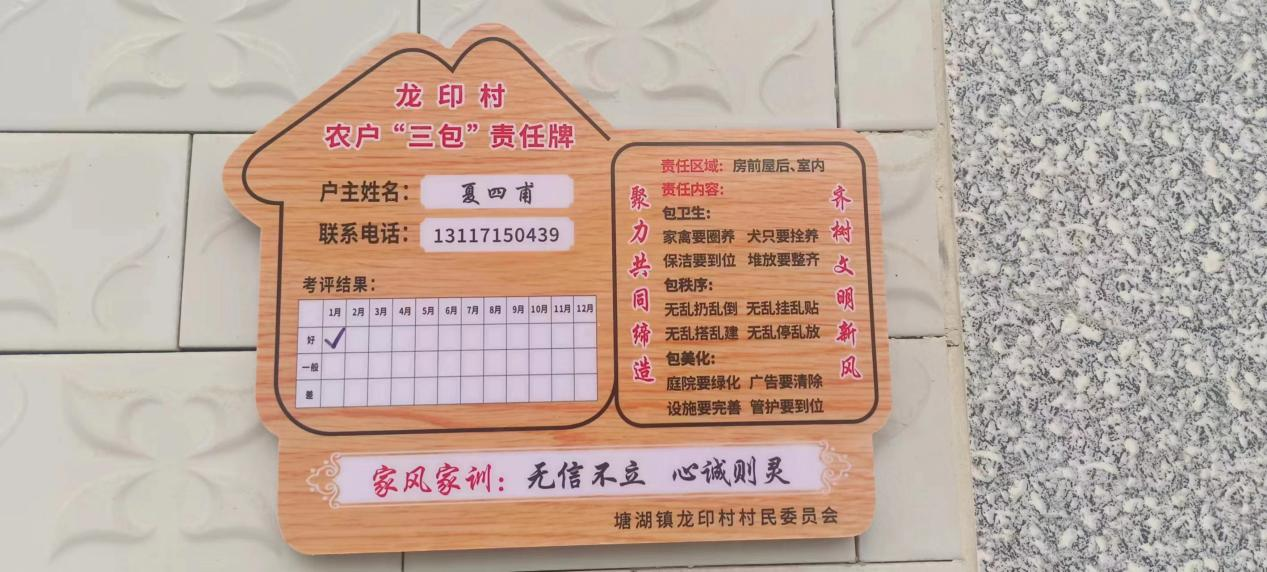 龙印村
农户“三包”责任牌
户主姓名：夏四甫
联系电话：13117150439
考评结果：
1月 2月 3月 4月 5月 6月 7月 8月 9月 10月 11月 12月
好 ✓
一般
差
聚力共同缔造
责任区域：房前屋后、室内
责任内容：
包卫生：
家禽要圈养 犬只要拴养
保洁要到位 堆放要整齐
包秩序：
无乱扔乱倒 无乱挂乱贴
无乱搭乱建 无乱停乱放
包美化：
庭院要绿化 广告要清除
设施要完善 管护要到位
齐树文明新风
家风家训：无信不立 心诚则灵
塘湖镇龙印村村民委员会